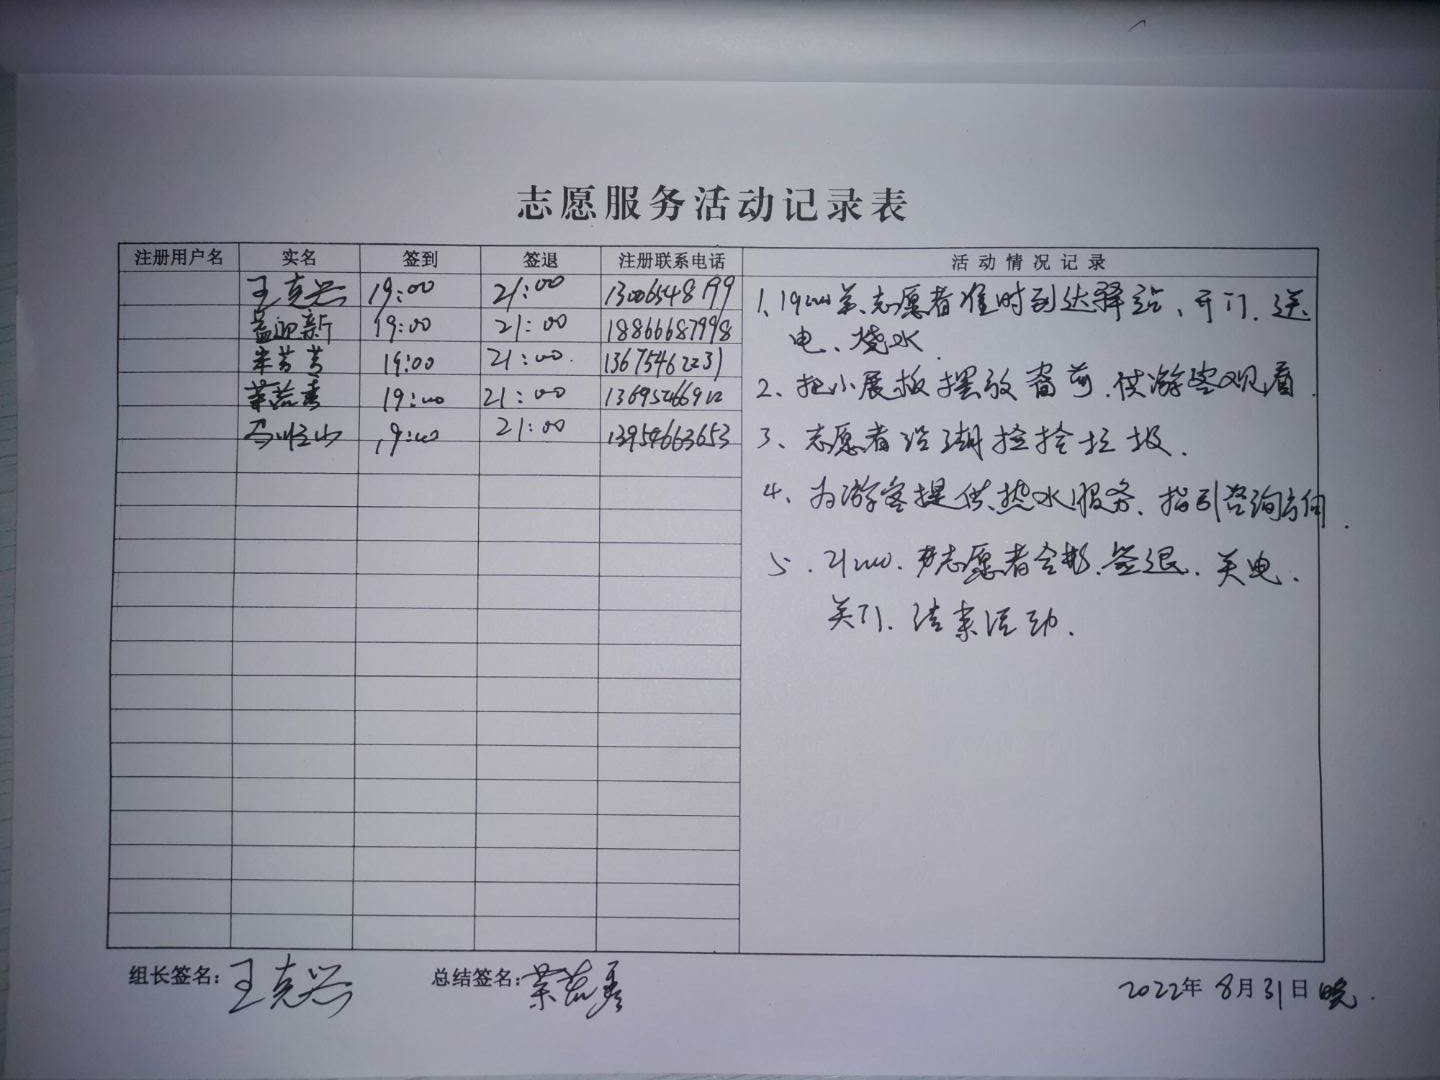 志愿服务活动记录表
注册用户名 实名 签到 签退 注册联系电话 活动情况记录
王克兴 19:00 21:00 13006548199
孟迎新 19:00 21:00 18866687998
芳 19:00 21:00 13675462231
19:00 21:00 13695466912
山 19:00 21:00 13954663653
1、19:00 志愿者准时到达驿站、开门、送
电、烧水.
2、把小展板摆放 前、供游客观看.
3、志愿者沿湖捡拾垃圾.
4、为游客提供热水服务、指引咨询方向.
5、21:00、志愿者合影、签退、关电、
关门、结束活动.
组长签名:王克兴 总结签名:
2022年8月31日晚.